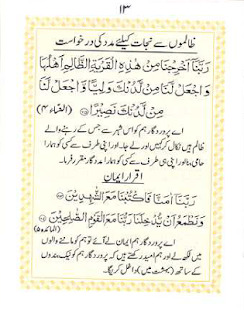 ۱۳
ظالموں سے نجات کیلئے مدد کی درخواست
رَبَّنَآ اَخْرِجْنَا مِنْ هٰذِهِ الْقَرْيَةِ الظَّالِمِ اَهْلُهَا
وَاجْعَلْ لَّنَا مِنْ لَّدُنْكَ وَلِيًّا وَّاجْعَلْ لَّنَا
مِنْ لَّدُنْكَ نَصِيْرًا (النساء ۴)
اے پروردگار ہم کو اس شہر سے جس کے رہنے والے
ظالم ہیں نکال کر کہیں اور لے جا۔ اور اپنی طرف سے کسی کو ہمارا
حامی بنا اور اپنی ہی طرف سے کسی کو ہمارا مددگار مقرر فرما۔
اقرار ایمان
رَبَّنَآ اٰمَنَّا فَاكْتُبْنَا مَعَ الشّٰهِدِيْنَ
وَنَطْمَعُ اَنْ يُّدْخِلَنَا رَبُّنَا مَعَ الْقَوْمِ الصّٰلِحِيْنَ
(المائدہ ۵)
اے پروردگار ہم ایمان لے آئے تو ہم کو ماننے والوں
میں لکھ لے اور ہم امید رکھتے ہیں کہ پروردگار ہم کو نیک بندوں
کے ساتھ (بہشت میں) داخل کریگا۔